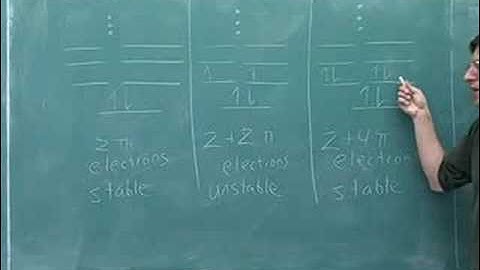 2 π
electrons
stable
2+2 π
electrons
unstable
2+4 π
electron
stable